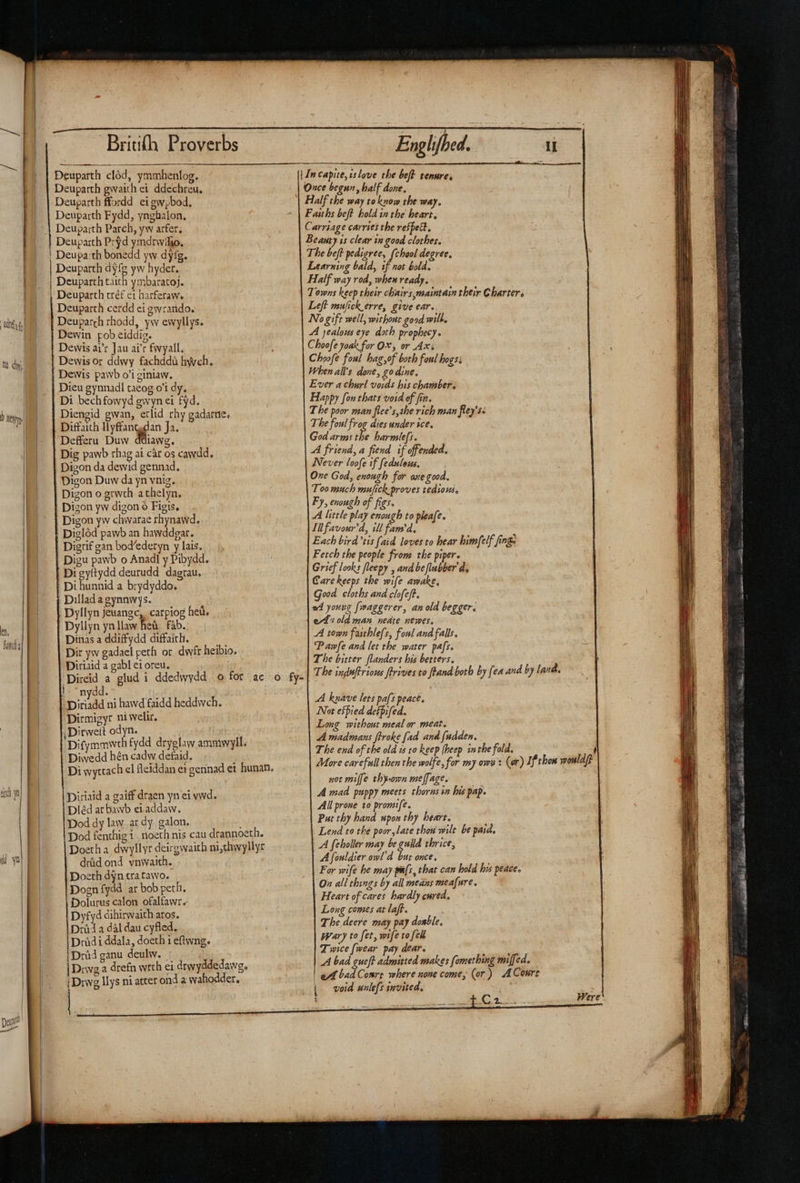 Britiſh Proverbs
Engliſhed.
11
Deuparth clôd, ymmhenlog.
Deuparth gwaith ei ddechreu.
Deuparth ffordd ei gwybod.
Deuparth Fydd, ynghalon.
Deuparth Parch, yw arfer.
Deuparth Prŷd ymdrwſio.
Deuparth bonedd yw dŷſg.
Deuparth dŷſg yw hyder.
Deuparth taith ymbaratoj.
Deuparth tréf ei harferaw.
Deuparth cerdd ei gwrando.
Deuparth rhodd, yw ewyllys.
Dewin pob eiddig.
Dewis ai'r Jau ai'r fwyall.
Dewis or ddwy fachddû hŵch.
Dewis pawb o'i giniaw.
Dieu gynnadl taeog o'i dy.
Di bechfowyd gwyn ei fŷd.
Diengid gwan, erlid rhy gadarne.
Diffaith llyffant dan Ja.
Defferu Duw ddiawg.
Dig pawb rhag ai câr os cawdd.
Digon da dewid gennad.
Digon Duw da yn vnig.
Digon o grwth a thelyn.
Digon yw digon o Figis.
Digon yw chwarae rhynawd.
Diglôd pawb an hawddgar.
Digrif gan bod'ederyn y lais.
Digu pawb o Anadl y Pibydd.
Digyſtydd deurudd dagrau.
Di hunnid a brydyddo.
Dillad a gynnwys.
Dyllyn Jeuangc, carpiog heû.
Dyllyn yn llaw heû fâb.
Dinas a ddiffydd diffaith.
Dir yw gadael peth or dwfr heibio.
Diriaid a gabl ei oreu.
Direid a glud i ddedwydd o for ac o fy-
nydd.
Diriadd ni hawd faidd heddwch.
Dirmigyr ni welir.
Dirweit odyn.
Difymmwth fydd dryglaw ammwyll.
Diwedd hên cadw defaid.
Di wyttach el fleiddan ei gennad ei hunan.
Diriaid a gaiff draen yn ei vwd.
Dléd ar bawb ei addaw.
Dod dy law ar dy galon.
Dod fenthig i noeth nis cau drannoeth.
Doeth a dwyllyr deirgwaith ni,thwyllyr
drûd ond vnwaith.
Doeth dŷn tra tawo.
Dogn fydd ar bob peth.
Dolurus calon ofalfawr.
Dyfyd dihirwaith aros.
Drûd a dâl dau cyfled.
Drûd i ddala, doeth i eſtwng.
Drûd ganu deulw.
Drwg a drefn wrth ei drwyddedawg.
Drwg llys ni atter ond a wahodder.
In capite, is love the beſt tenure.
Once begun, half done.
Half the way to know the way.
Faiths beſt hold in the heart.
Carriage carries the reſpect.
Beauty is clear in good clothes.
The beſt pedigree, ſchool degree.
Learning bald, if not bold.
Half way rod, when ready.
Towns keep their chairs, maintain their Charter.
Leſt muſick erre, give ear.
No gift well, without good will.
A jealous eye doth prophecy.
Chooſe yoak for Ox, or Ax.
Chooſe foul hag, of both foul hogs.
When all's done, go dine.
Ever a churl voids his chamber.
Happy ſon thats void of ſin.
The poor man flee's, the rich man fley's.
The foul frog dies under ice.
God arms the harmleſs.
A friend, a fiend if offended.
Never looſe if ſedulous.
One God, enough for one good.
Too much muſick proves tedious.
Fy, enough of figs.
A little play enough to pleaſe.
Ill favour'd, ill fam'd.
Each bird 'tis ſaid loves to hear himſelf ſing.
Fetch the people from the piper.
Grief looks ſleepy, and beſlubber'd.
Care keeps the wiſe awake.
Good cloths and cloſeſt.
A young ſwaggerer, an old begger.
As old man neare newes.
A town faithleſs, foul and falls.
Pawſe and let the water paſs.
The bitter ſlanders his betters.
The induſtrious ſtrives to ſtand both by ſea and by land.
A knave lets paſs peace.
Not eſpied deſpiſed.
Long without meal or meat.
A madmans ſtroke ſad and ſudden.
The end of the old is to keep ſheep in the fold.
More carefull then the wolfe, for my own: (or) If thou wouldſt
not miſſe thy own meſſage.
A mad puppy meets thorns in his pap.
All prone to promiſe.
Put thy hand upon thy heart.
Lend to the poor, late thou wilt be paid.
A ſcholler may be gulld thrice,
A ſouldier owl'd but once.
For wiſe he may paſs, that can hold his peace.
On all things by all means meaſure.
Heart of cares hardly cured.
Long comes at laſt.
The deere may pay double.
Wary to ſet, wiſe to ſell
Twice ſwear pay dear.
A bad gueſt admitted makes ſomething miſſed.
A bad Court where none come, (or) A Court
void unleſs invited.
C2
Were